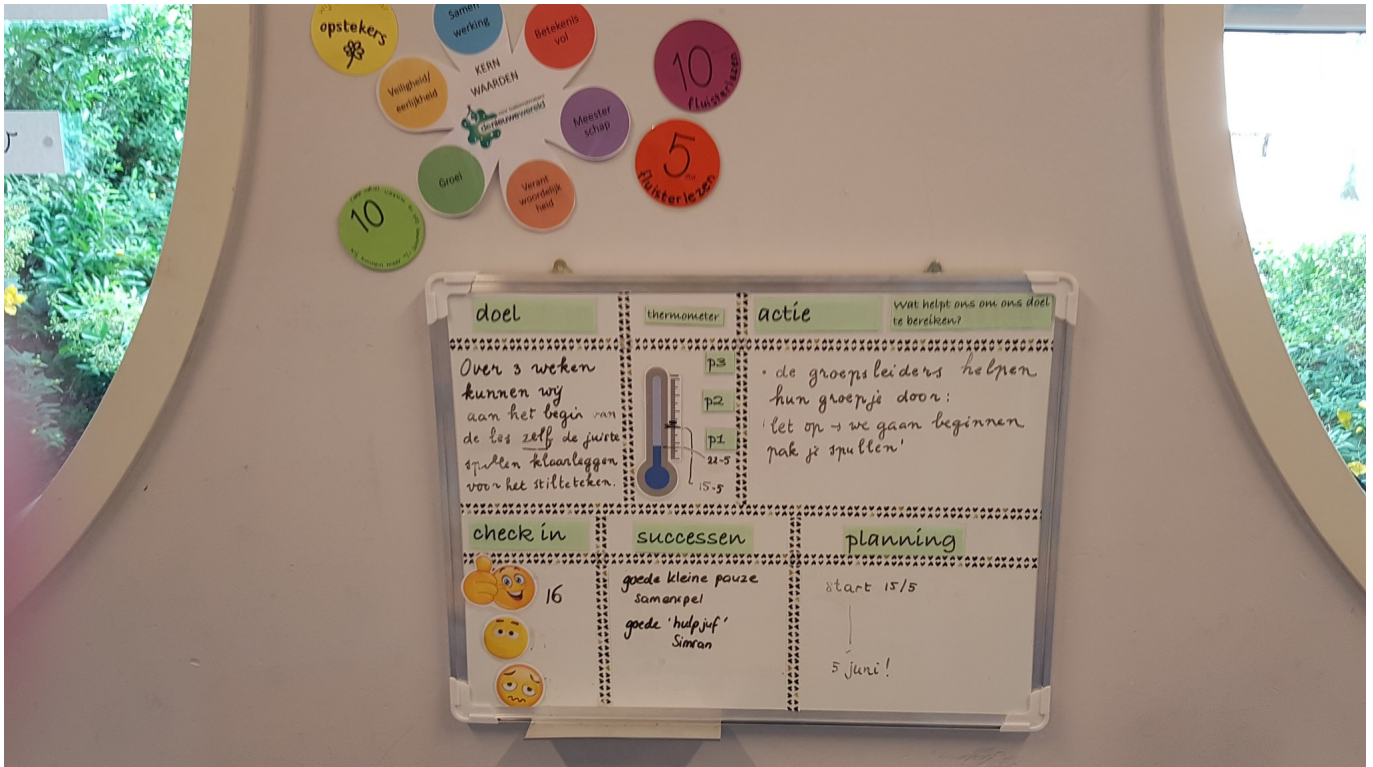 opstekers
Samen
werking
Betekenis
vol
Veiligheid/
eerlijkheid
KERN
WAARDEN
denieuwewereld
Meester
schap
Groei
Verant
woordelijk
heid
10
fluisterlezen
5
fluisterlezen
10
doel
thermometer
actie
Wat helpt ons om ons doel
te bereiken?
Over 3 weken
kunnen wij
aan het begin van
de les zelf de juiste
spullen klaarleggen
voor het stilteteken.
p3
p2
p1
22-5
15-5
• de groepsleiders helpen
hun groepje door:
'let op → we gaan beginnen
pak je spullen'
check in
successen
planning
16
goede kleine pauze
samenspel
goede 'hulpjuf'
Simran
start 15/5
5 juni!